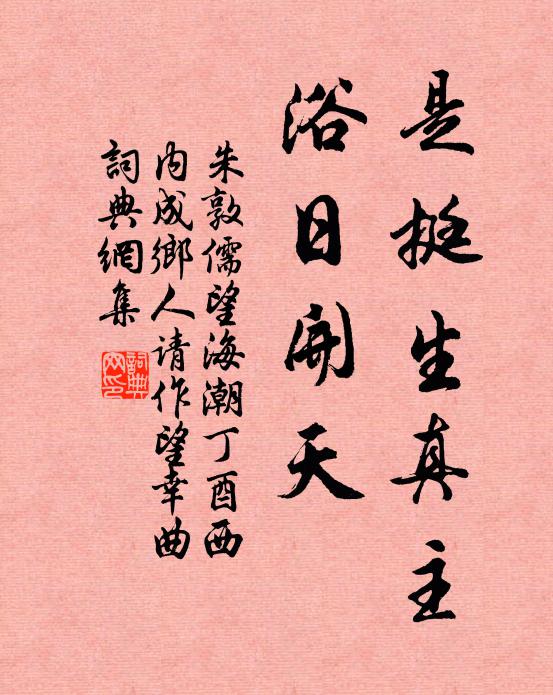 是挺生真主
浴日開天
朱敦儒望海潮丁酉西
内成鄉人请作望幸曲
詞典網集
詞典
网印